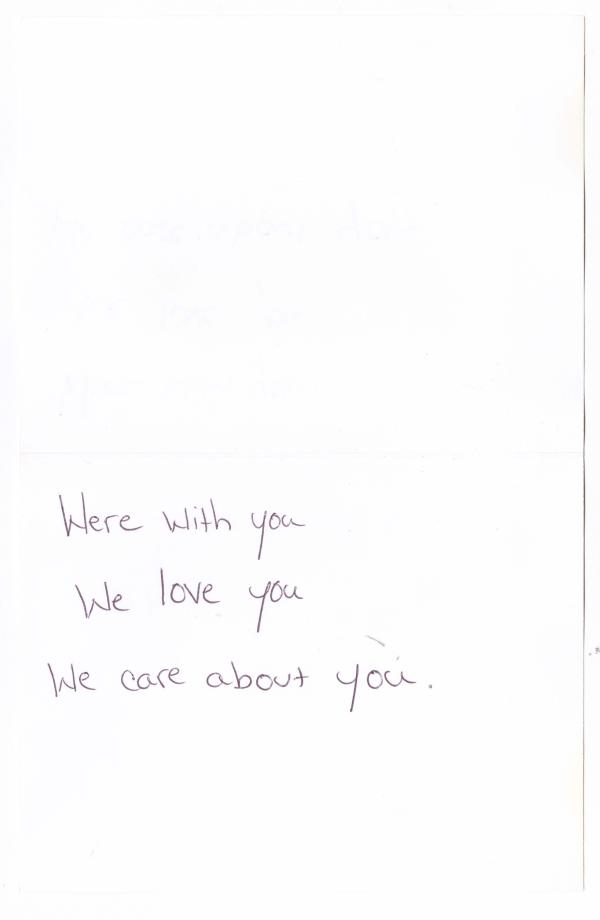 Were with you
We love you
We care about you.